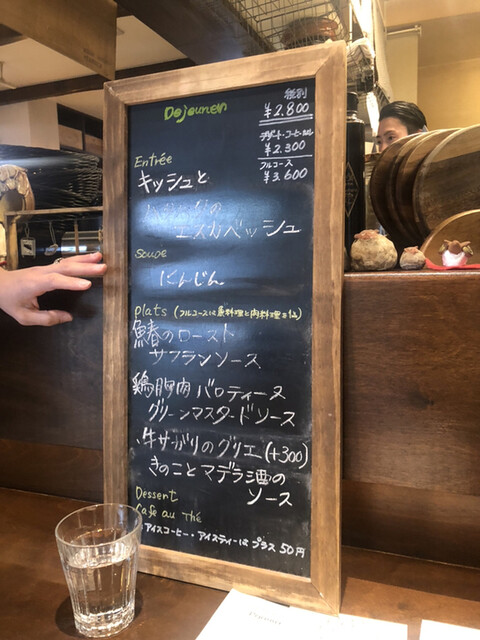 Dejeuner
税別
¥2.800
デザート・コーヒーなし
¥2.300
フルコース
¥3.600
Entrée
キッシュと
エスカベッシュ
Soupe
にんじん
Plats (フルコースは魚料理と肉料理
鰆のロースト
サフランソース
鶏胸肉バロティーヌ
グリーンマスタードソース
牛サガリのグリエ(+300)
きのことマデラ酒の
ソース
Dessert
Café au Thé
アイスコーヒー・アイスティーはプラス50円